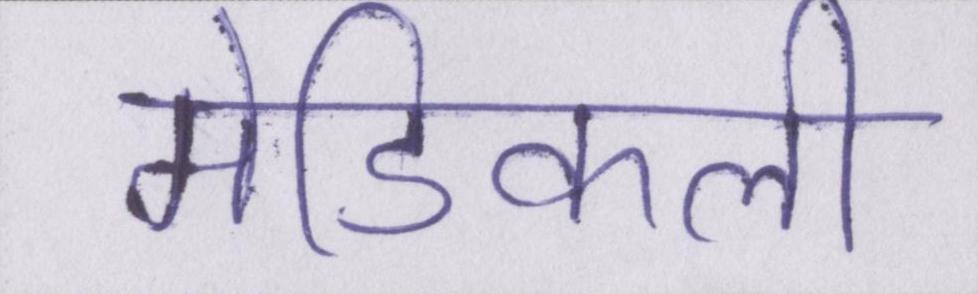 मेडिकली